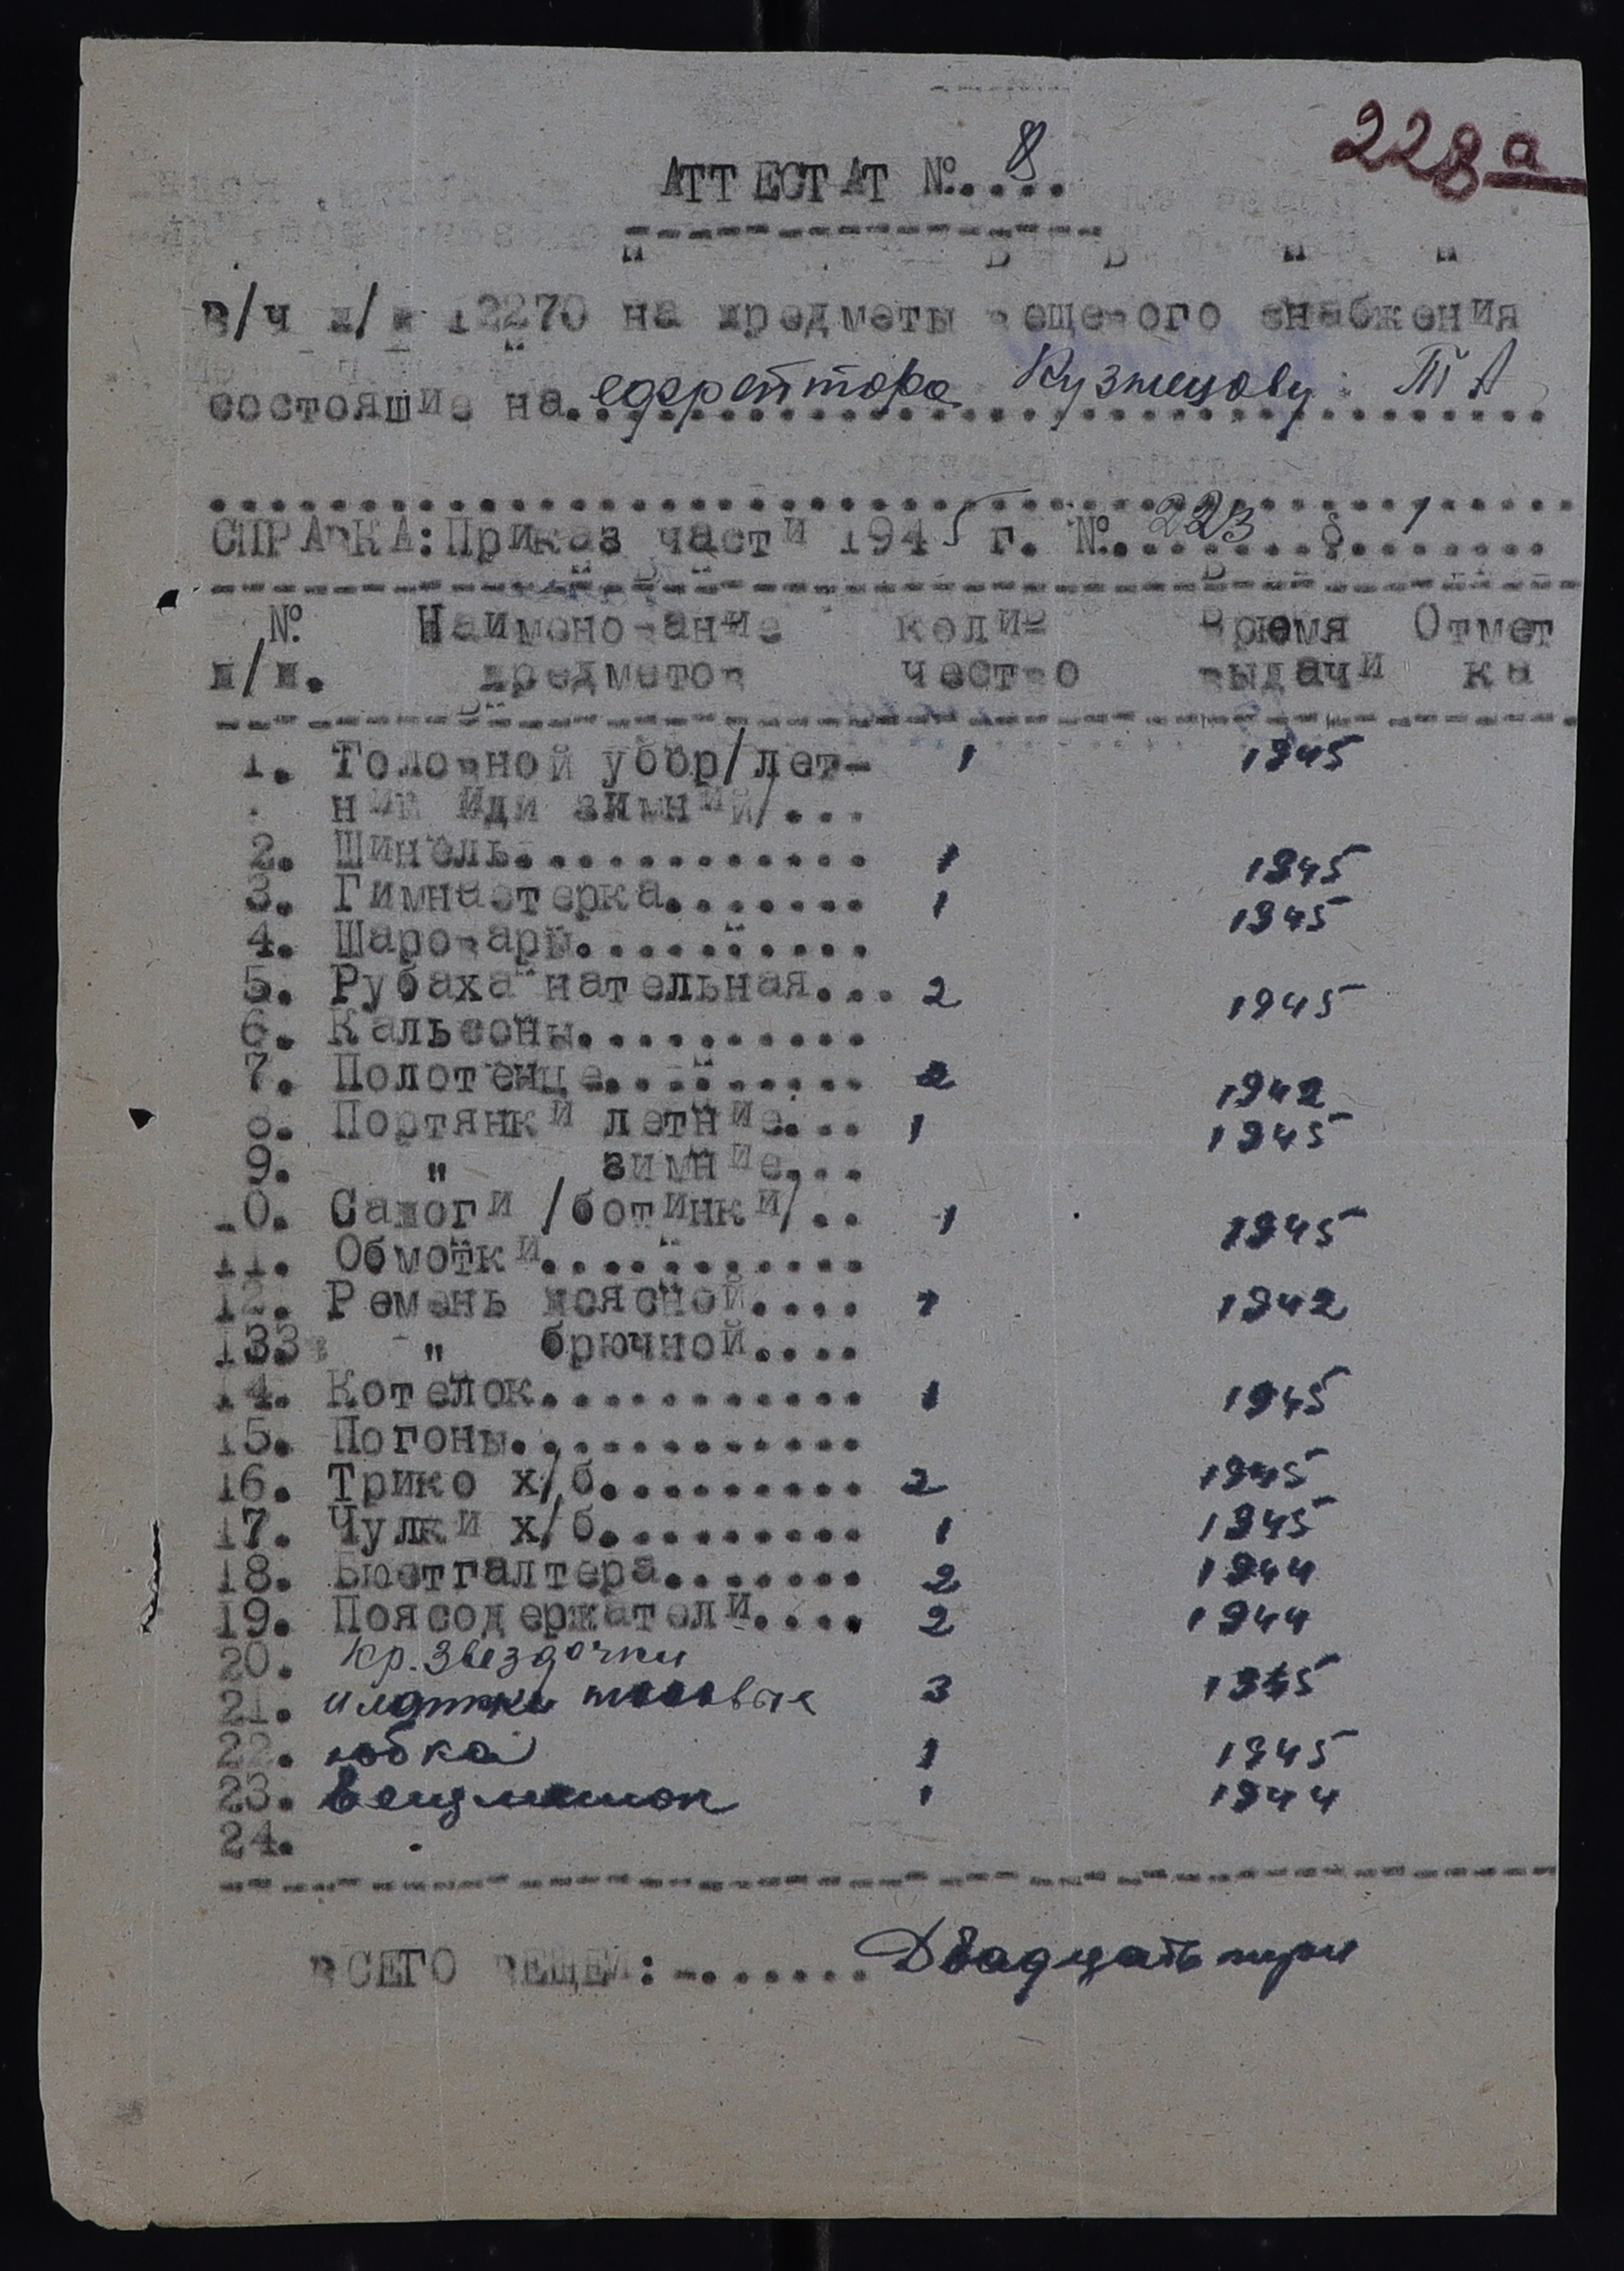 228а
АТТЕСТАТ №. 8 ....
в/ч п/п 12270 на предметы вещевого снабжения
состоящие на. ефрейтора Кузнецову Т А
СПРАВКА: Приказ части 1945 г. №. 223 § 1
№. Наименование коли- Время Отмет
п/п. предметов чество выдачи ка
1. Головной убор/лет- 1 1945
ний или зимний/...
2. Шинель............ 1 1945
3. Гимнастерка....... 1 1945
4. Шаровары..........
5. Рубаха нательная... 2 1945
6. Кальсоны..........
7. Полотенце......... 2 1942
8. Портянки летние... 1 1945
9. " зимние...
10. Сапоги /ботинки/.. 1 1945
11. Обмотки...........
12. Ремень поясной.... 1 1942
133 " брючной....
14. Котелок........... 1 1945
15. Погоны............
16. Трико х/б......... 2 1945
17. Чулки х/б......... 1 1945
18. Бюстгалтера....... 2 1944
19. Поясодержатели.... 2 1944
20. кр. звездочки
21. платки носовые 3 1945
22. юбка 1 1945
23. Вещмешок 1 1944
24.
ВСЕГО ВЕЩЕЙ:-....... Двадцать три